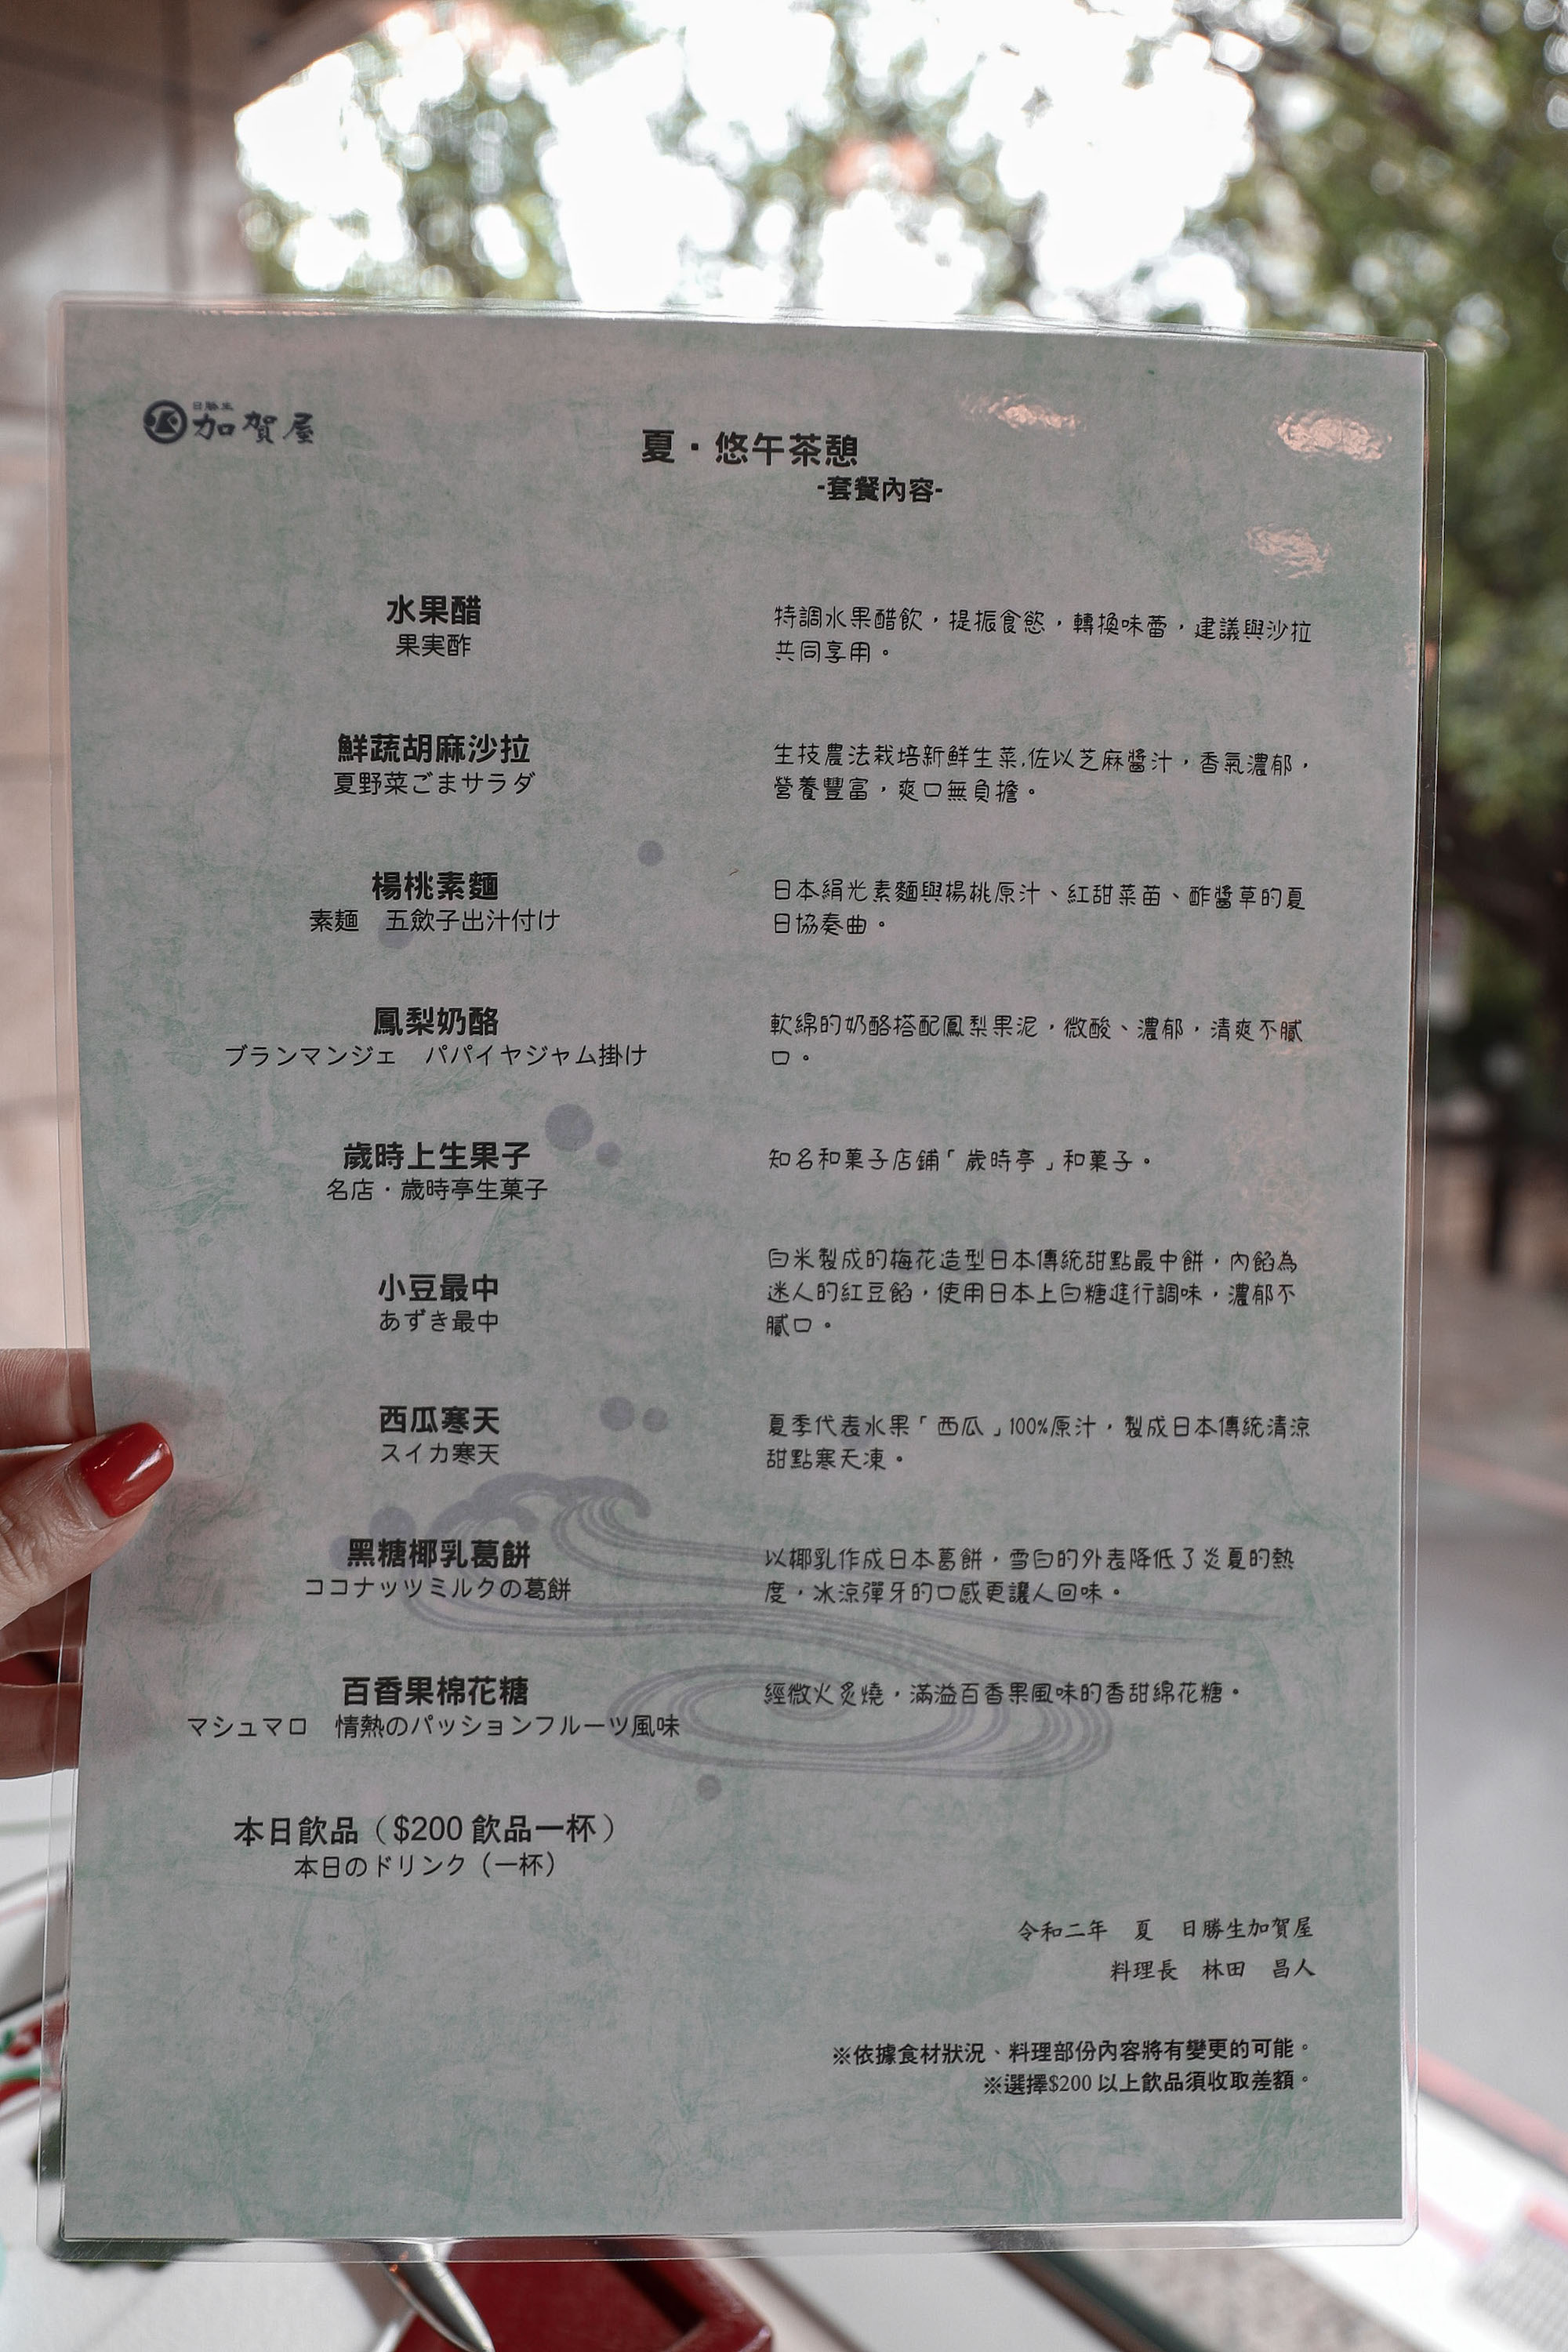 日勝生
加賀屋
夏・悠午茶憩
-套餐內容-
水果醋
果実酢
特調水果醋飲，提振食慾，轉換味蕾，建議與沙拉
共同享用。
鮮蔬胡麻沙拉
夏野菜ごまサラダ
生技農法栽培新鮮生菜,佐以芝麻醬汁，香氣濃郁，
營養豐富，爽口無負擔。
楊桃素麵
素麺　五斂子出汁付け
日本絹光素麵與楊桃原汁、紅甜菜苗、酢醬草的夏
日協奏曲。
鳳梨奶酪
ブランマンジェ　パパイヤジャム掛け
軟綿的奶酪搭配鳳梨果泥，微酸、濃郁，清爽不膩
口。
歲時上生果子
名店・歳時亭生菓子
知名和菓子店鋪「歲時亭」和菓子。
小豆最中
あずき最中
白米製成的梅花造型日本傳統甜點最中餅，內餡為
迷人的紅豆餡，使用日本上白糖進行調味，濃郁不
膩口。
西瓜寒天
スイカ寒天
夏季代表水果「西瓜」100%原汁，製成日本傳統清涼
甜點寒天凍。
黑糖椰乳葛餅
ココナッツミルクの葛餅
以椰乳作成日本葛餅，雪白的外表降低了炎夏的熱
度，冰涼彈牙的口感更讓人回味。
百香果棉花糖
マシュマロ　情熱のパッションフルーツ風味
經微火炙燒，滿溢百香果風味的香甜綿花糖。
本日飲品（$200 飲品一杯）
本日のドリンク（一杯）
令和二年　夏　日勝生加賀屋
料理長　林田　昌人
※依據食材狀況、料理部份內容將有變更的可能。
※選擇$200 以上飲品須收取差額。